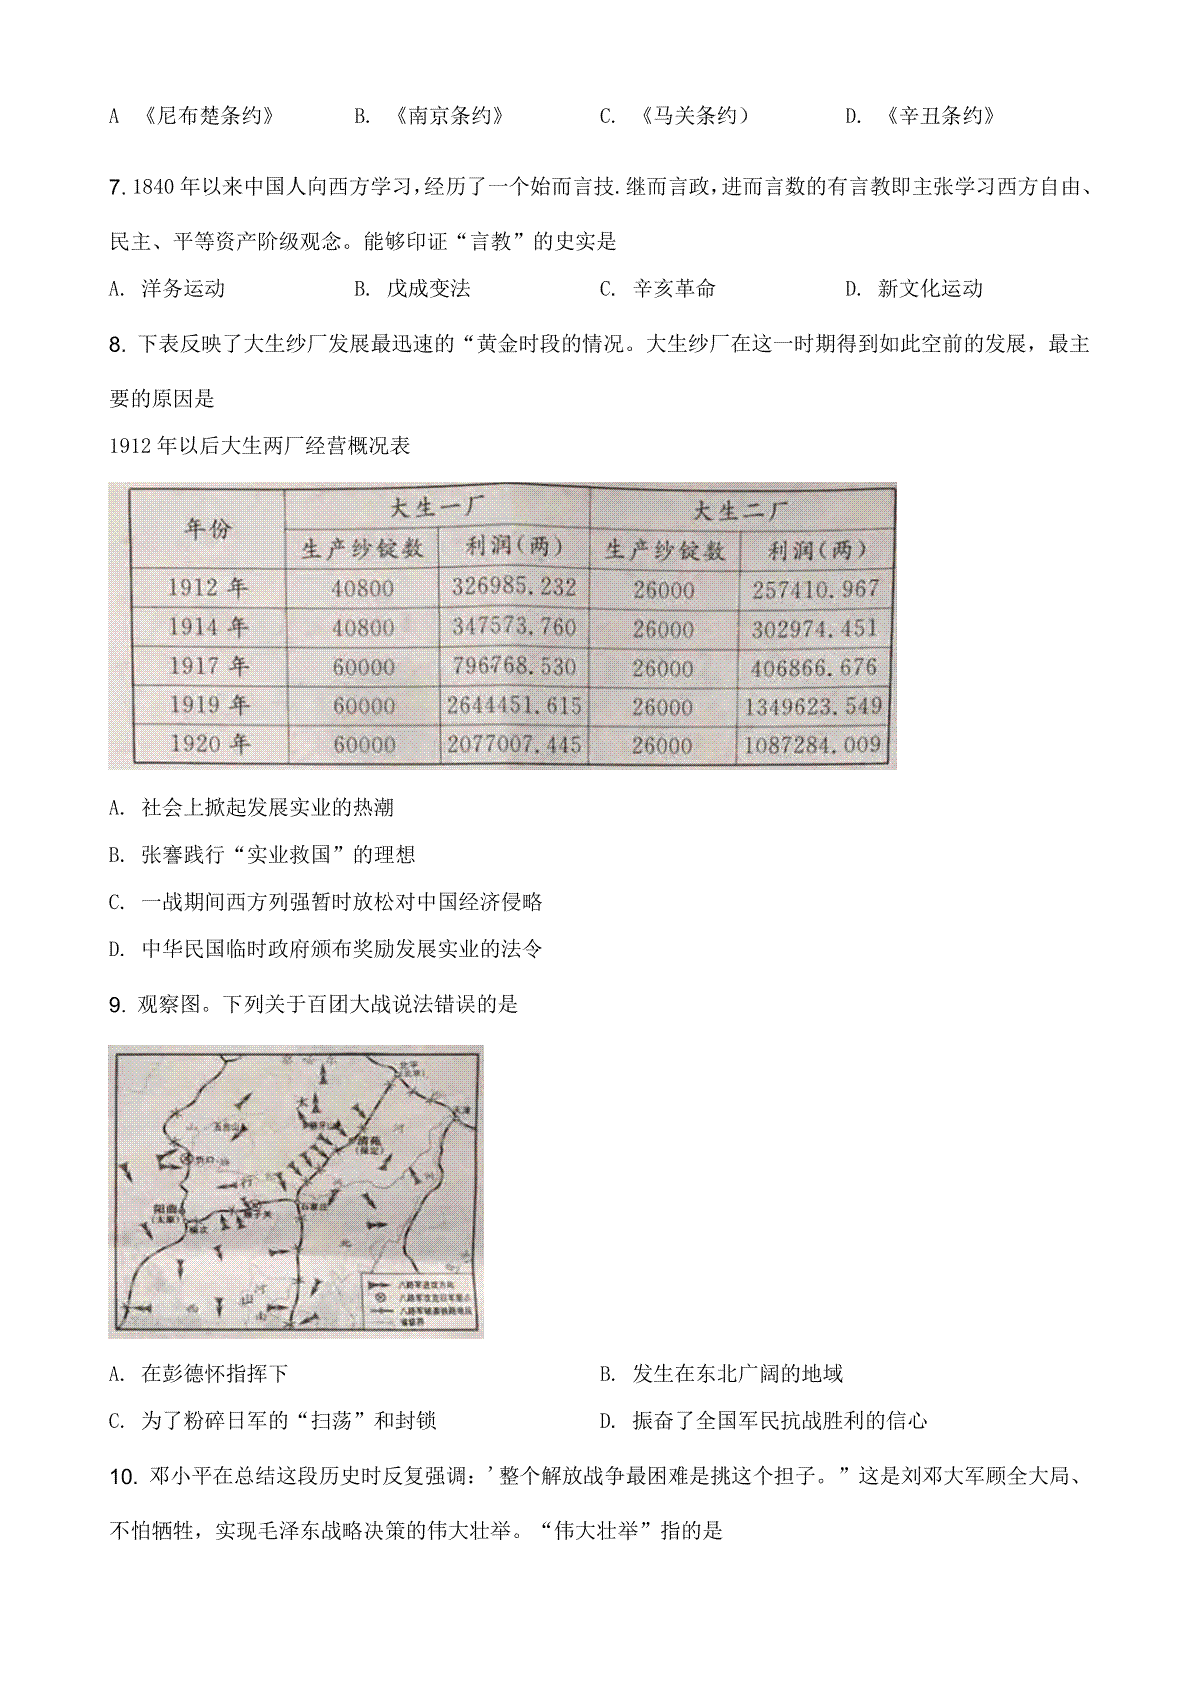 A 《尼布楚条约》 B. 《南京条约》 C. 《马关条约） D. 《辛丑条约》
7. 1840 年以来中国人向西方学习，经历了一个始而言技. 继而言政，进而言数的有言教即主张学习西方自由、
民主、平等资产阶级观念。能够印证“言教”的史实是
A. 洋务运动 B. 戊成变法 C. 辛亥革命 D. 新文化运动
8. 下表反映了大生纱厂发展最迅速的“黄金时段的情况。大生纱厂在这一时期得到如此空前的发展，最主
要的原因是
1912 年以后大生两厂经营概况表
年份 大生一厂 大生二厂
生产纱锭数 利润(两) 生产纱锭数 利润(两)
1912 年 40800 326985.232 26000 257410.967
1914 年 40800 347573.760 26000 302974.451
1917 年 60000 796768.530 26000 406866.676
1919 年 60000 2644451.615 26000 1349623.549
1920 年 60000 2077007.445 26000 1087284.009
A. 社会上掀起发展实业的热潮
B. 张謇践行“实业救国”的理想
C. 一战期间西方列强暂时放松对中国经济侵略
D. 中华民国临时政府颁布奖励发展实业的法令
9. 观察图。下列关于百团大战说法错误的是
北平
天津
太
山
五台山
河
行
阳曲
(太原)
榆次
娘子关
石家庄
北
西
河
山
山
八路军进攻方向
省级界
A. 在彭德怀指挥下 B. 发生在东北广阔的地域
C. 为了粉碎日军的“扫荡”和封锁 D. 振奋了全国军民抗战胜利的信心
10. 邓小平在总结这段历史时反复强调：’整个解放战争最困难是挑这个担子。”这是刘邓大军顾全大局、
不怕牺牲，实现毛泽东战略决策的伟大壮举。“伟大壮举”指的是